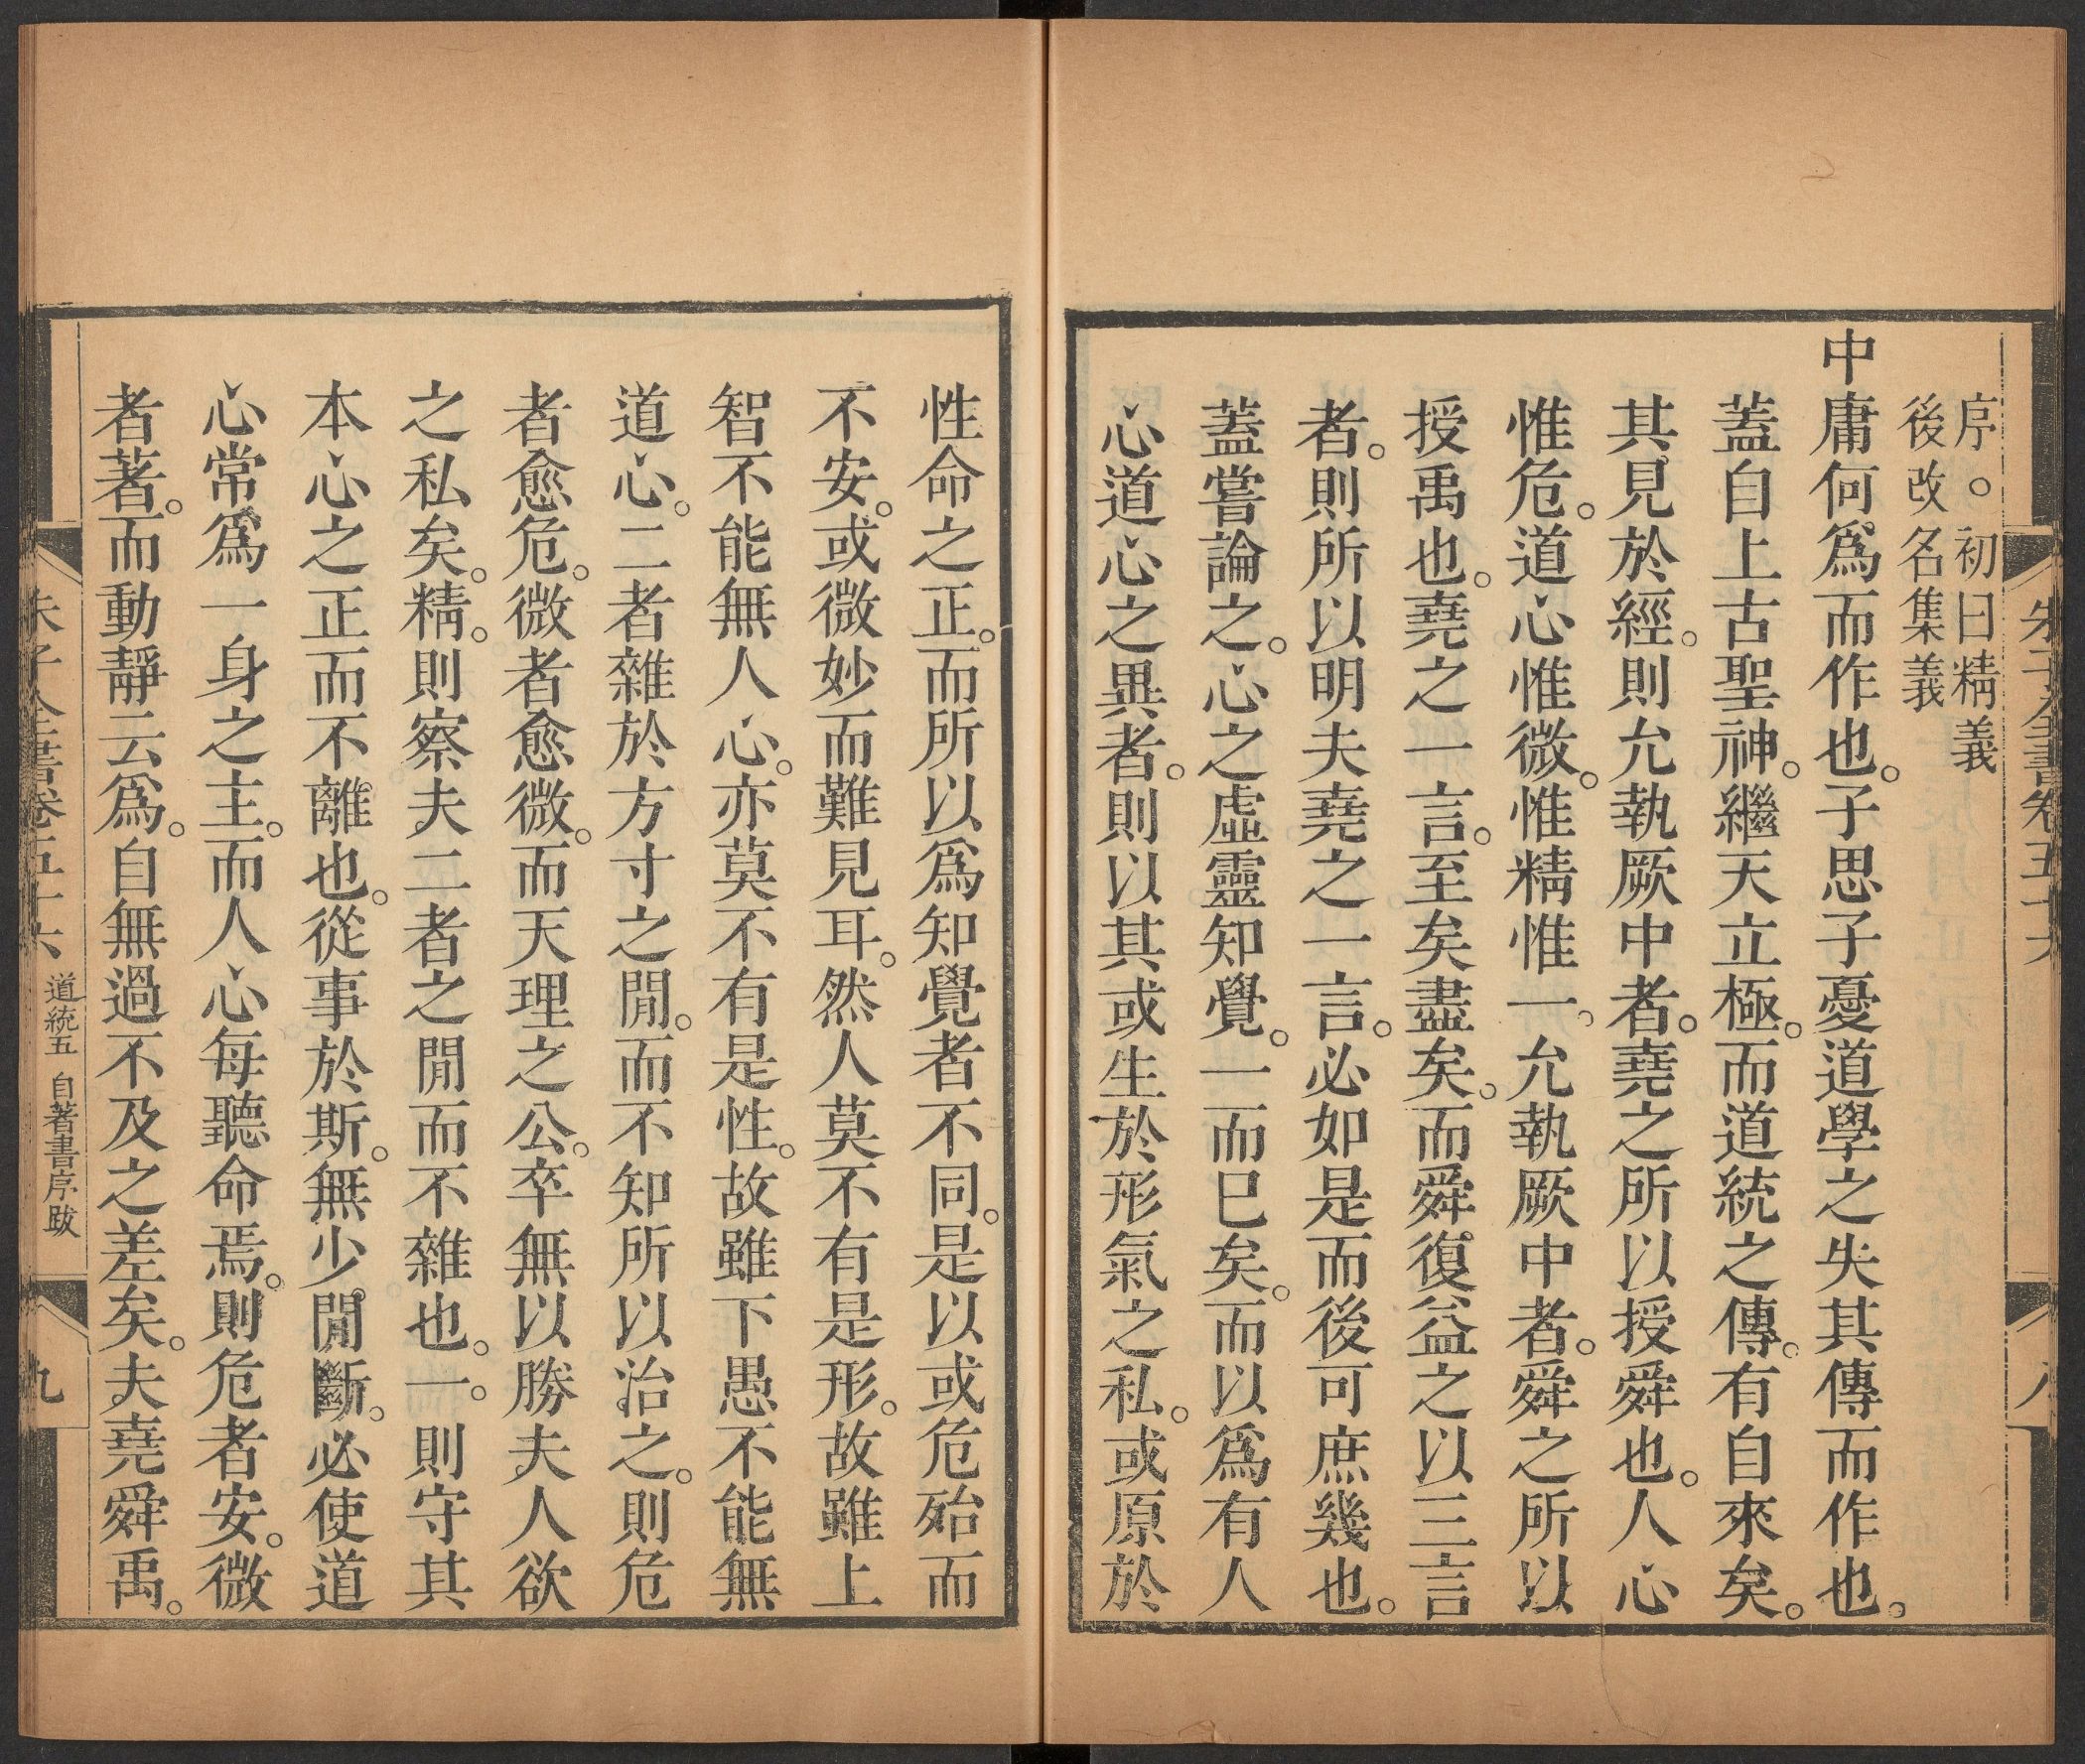 序。初曰精義
後改名集義
中庸何爲而作也。子思子憂道學之失其傳而作也。
蓋自上古聖神。繼天立極。而道統之傳。有自來矣。
其見於經。則允執厥中者。堯之所以授舜也。人心
惟危。道心惟微。惟精惟一。允執厥中者。舜之所以
授禹也。堯之一言。至矣盡矣。而舜復益之以三言
者。則所以明夫堯之一言。必如是而後可庶幾也。
蓋嘗論之。心之虛靈知覺。一而已矣。而以爲有人
心道心之異者。則以其或生於形氣之私。或原於
性命之正。而所以爲知覺者不同。是以或危殆而
不安。或微妙而難見耳。然人莫不有是形。故雖上
智不能無人心。亦莫不有是性。故雖下愚不能無
道心。二者雜於方寸之閒。而不知所以治之。則危
者愈危。微者愈微。而天理之公。卒無以勝夫人欲
之私矣。精。則察夫二者之閒而不雜也。一。則守其
本心之正而不離也。從事於斯。無少閒斷。必使道
心常爲一身之主。而人心每聽命焉。則危者安。微
者著。而動靜云爲。自無過不及之差矣。夫堯舜禹。
朱子全書卷五十六 道統五 自著書序跋 九